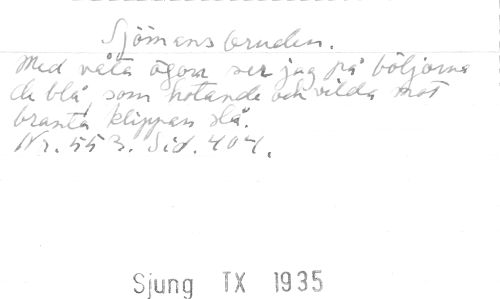 Sjömansbruden.
Med våta ögon ser jag på böljorna
de blå, som hotande och vilda mot
branta klippan slå.
Nr. 553. Sid. 404.
Sjung TX 1935